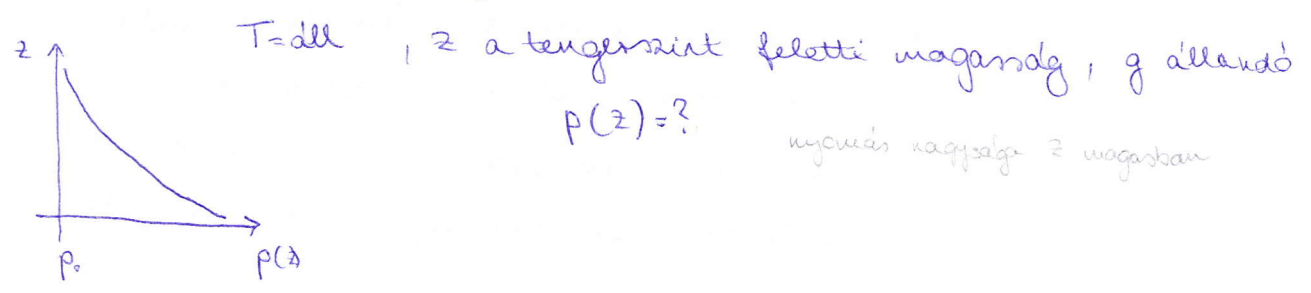 T=áll , z a tengerszint feletti magasság, g állandó
z
p(z)=?
nyomás nagysága z magasban
p₀ p(z)